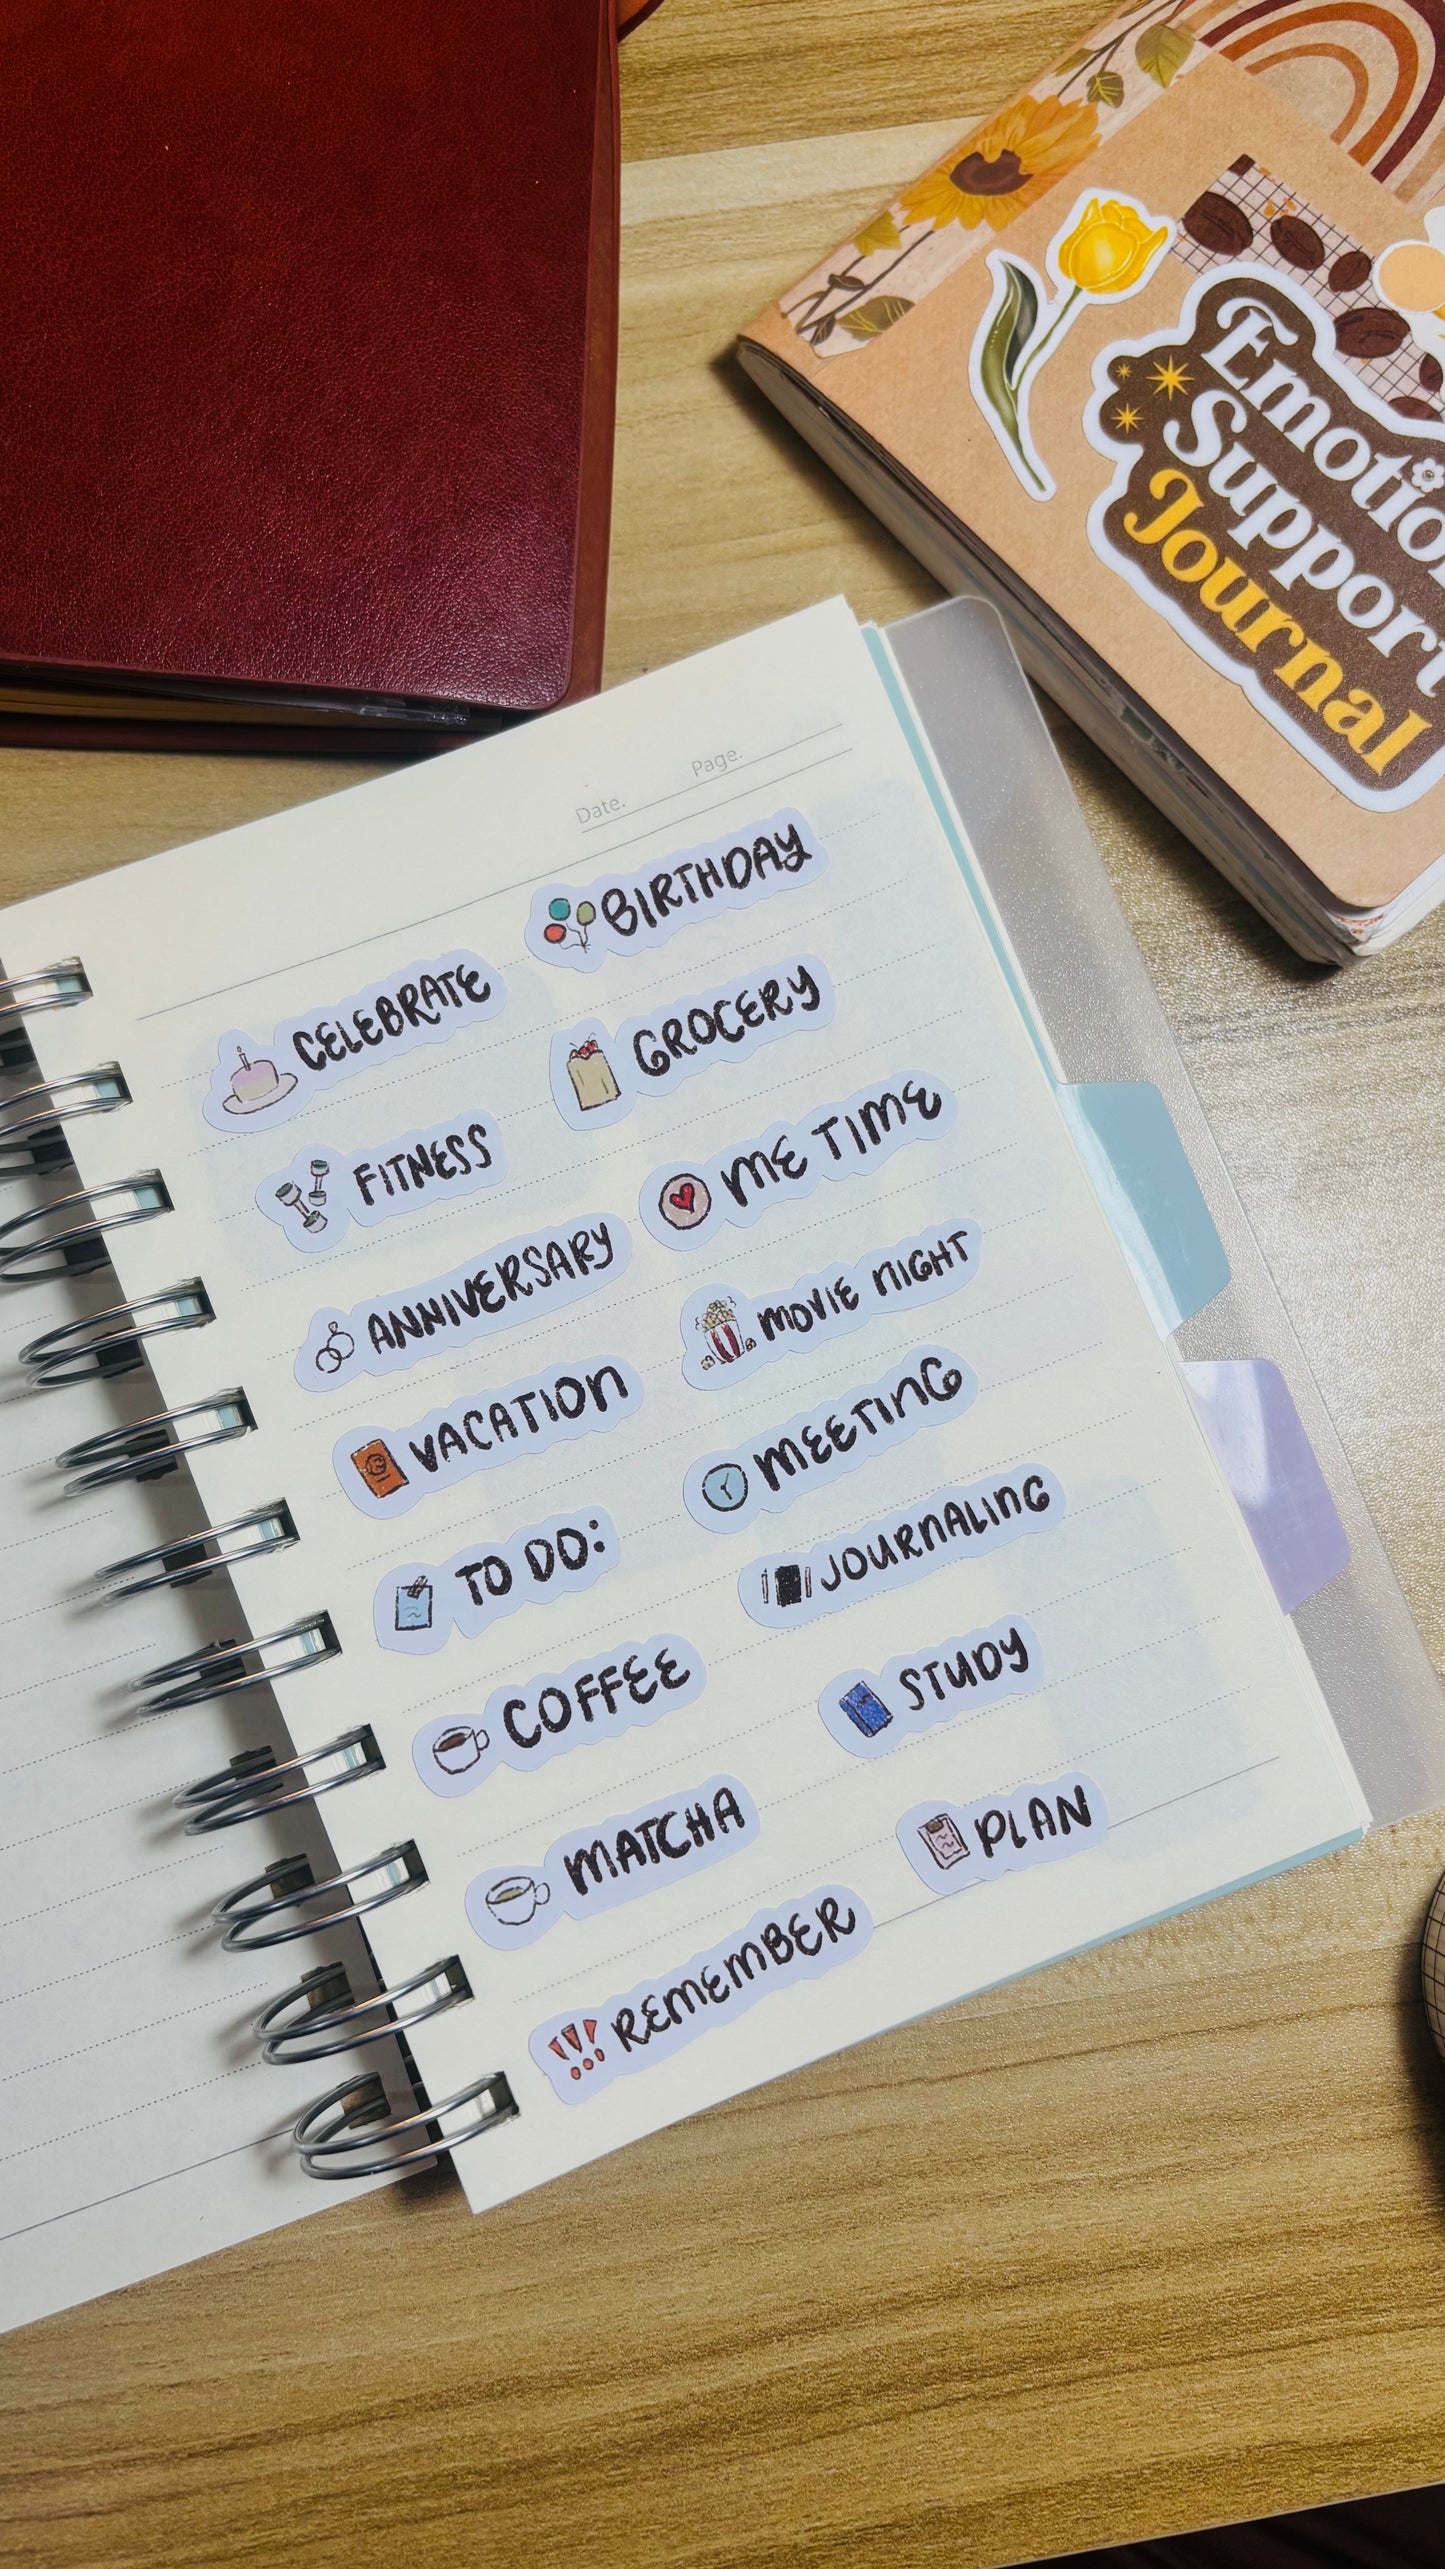 Emotio
Support
Journal
Date.
Page.
CELEBRATE
BIRTHDAY
FITNESS
GROCERY
ANNIVERSARY
ME TIME
VACATION
MOVIE NIGHT
TO DO:
MEETING
COFFEE
JOURNALING
MATCHA
STUDY
REMEMBER
PLAN